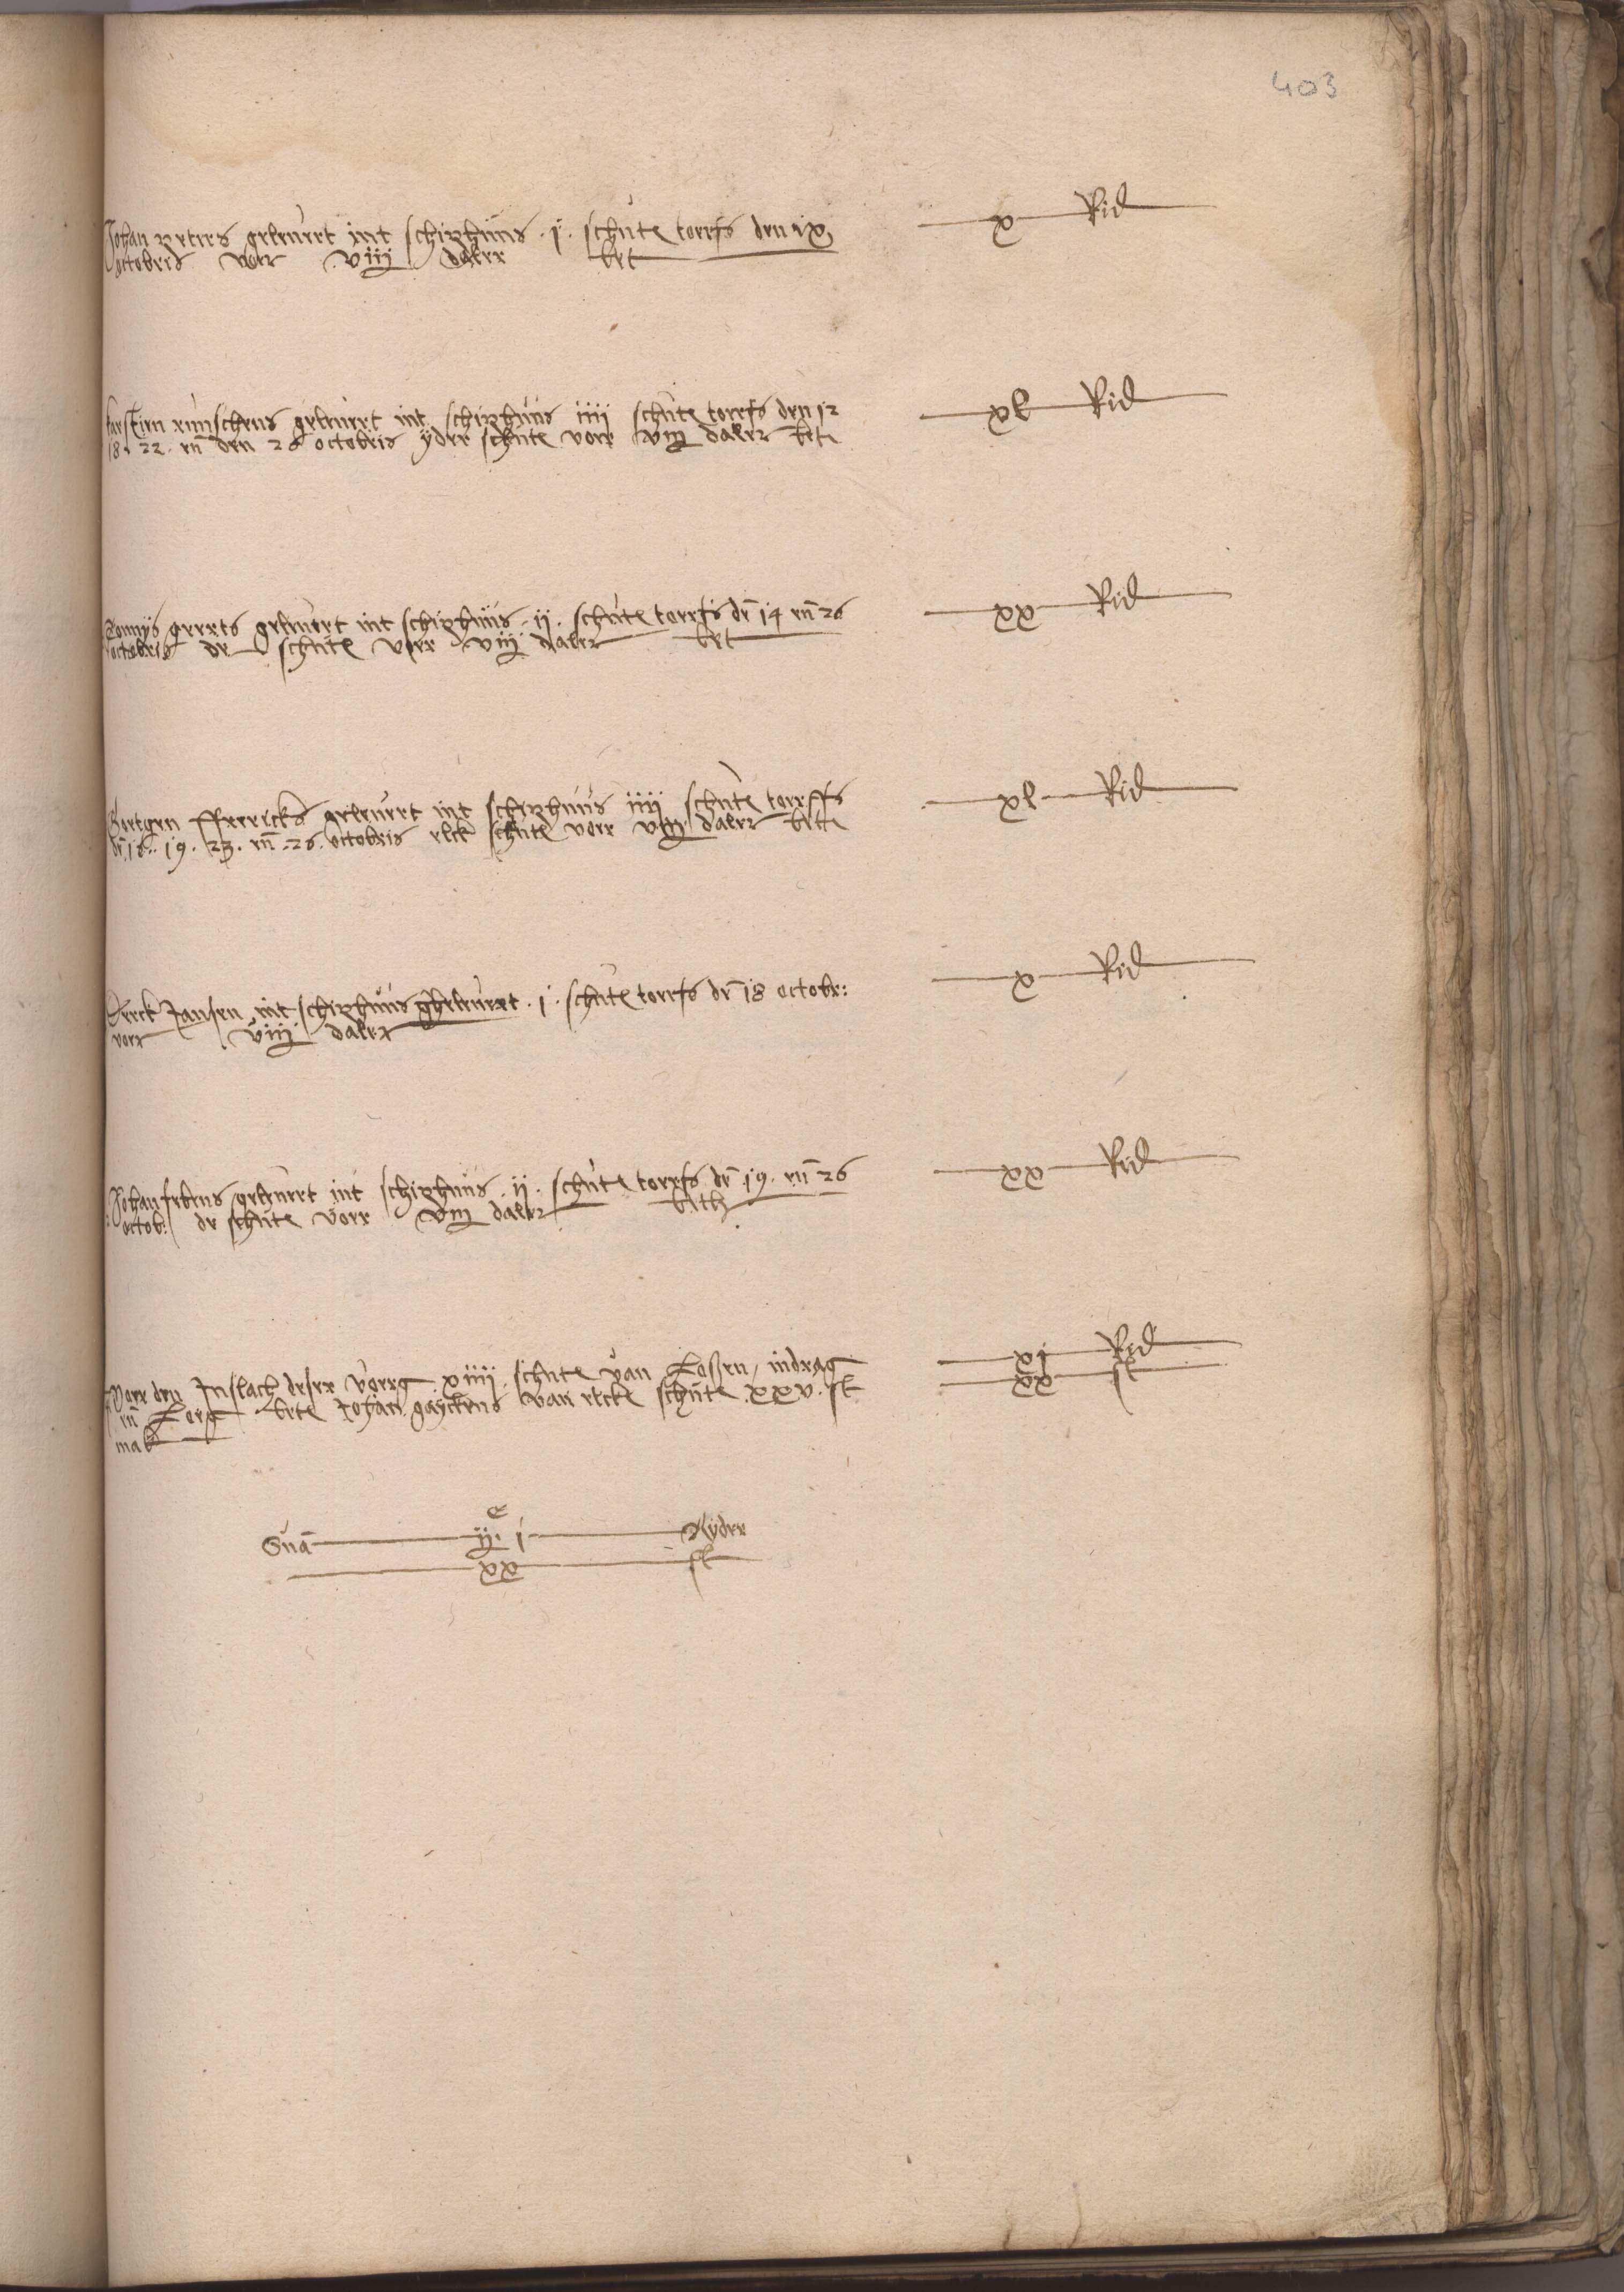 403
Johan peters geleuert int schiphuus .i. schute torfs den ix
octobris voer viij daler bet
x Rid
karstien runschens geleuert int schiphuus iiij schute torfs den 12
18. 22. en den 26 octobris yder schute voer viij daler bet
xl Rid
Tonnijs geerts geleuert int schiphuus .ij. schute torfs de 14 en 26
octobris de schute voer viij daler bet
xx Rid
Gortgen ffrericks geleuert int schiphuus iiij schute torffs
de 16. 19. 23. en .26. octobris elck schute voer viij daler bet
xl Rid
Derck Jansen int schiphuus gheleuert .i. schute torfs de 18 octobr:
voer viij daler
x Rid
Johan febens geleuert int schiphuus .ij. schute torfs de .19. en 26
octob: de schute voer viij daler beth
xx Rid
Voer den Inslach deser voerg xiiij schute van Lossen, indrag
en Loeg bete Johan gayckens van elcke schute .xxv. st
mak
xj Rid
xx st
Sua ij c i Ryder
xx st